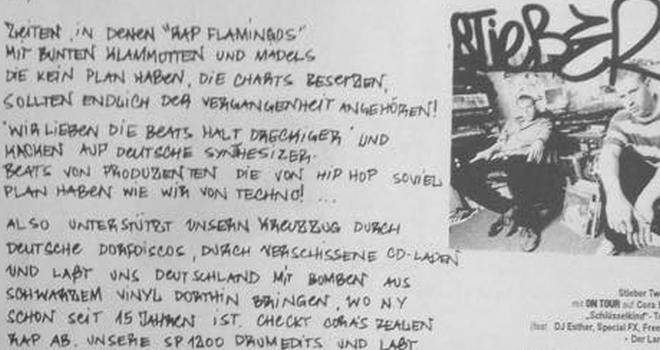 ZEITEN, IN DENEN "RAP FLAMINGOS"
MIT BUNTEN KLAMMOTTEN UND MÄDELS
DIE KEIN PLAN HABEN, DIE CHARTS BESETZEN,
SOLLTEN ENDLICH DER VERGANGENHEIT ANGEHÖREN!
"WIR LIEBEN DIE BEATS HALT DRECKIGER" UND
HACKEN AUF DEUTSCHE SYNTHESIZER-
BEATS VON PRODUZENTEN DIE VON HIP HOP SOVIEL
PLAN HABEN WIE WIR VON TECHNO! ...
ALSO UNTERSTÜTZT UNSERN KREUZZUG DURCH
DEUTSCHE DORFDISCOS, DURCH VERSCHISSENE CD-LÄDEN
UND LAßT UNS DEUTSCHLAND MIT BOMBEN AUS
SCHWARZEM VINYL DORTHIN BRINGEN, WO NY
SCHON SEIT 15 JAHREN IST. CHECKT CORA'S REALEN
RAP AB. UNSERE SP 1200 DRUMEDITS UND LAßT
STIEBER
Stieber Tw
mit ON TOUR auf Cora
„Schlüsselkind"- T
(feat. DJ Esther, Special FX, Free
- Der Lan